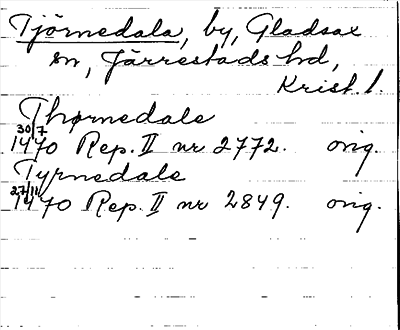 Tjörnedala, by, Gladsax
sn, Järrestads hd,
Krist. l.
Thørnedale
30/7
1470 Rep. II nr 2772. orig.
Tyrnedale
27/11
1470 Rep. II nr 2849. orig.